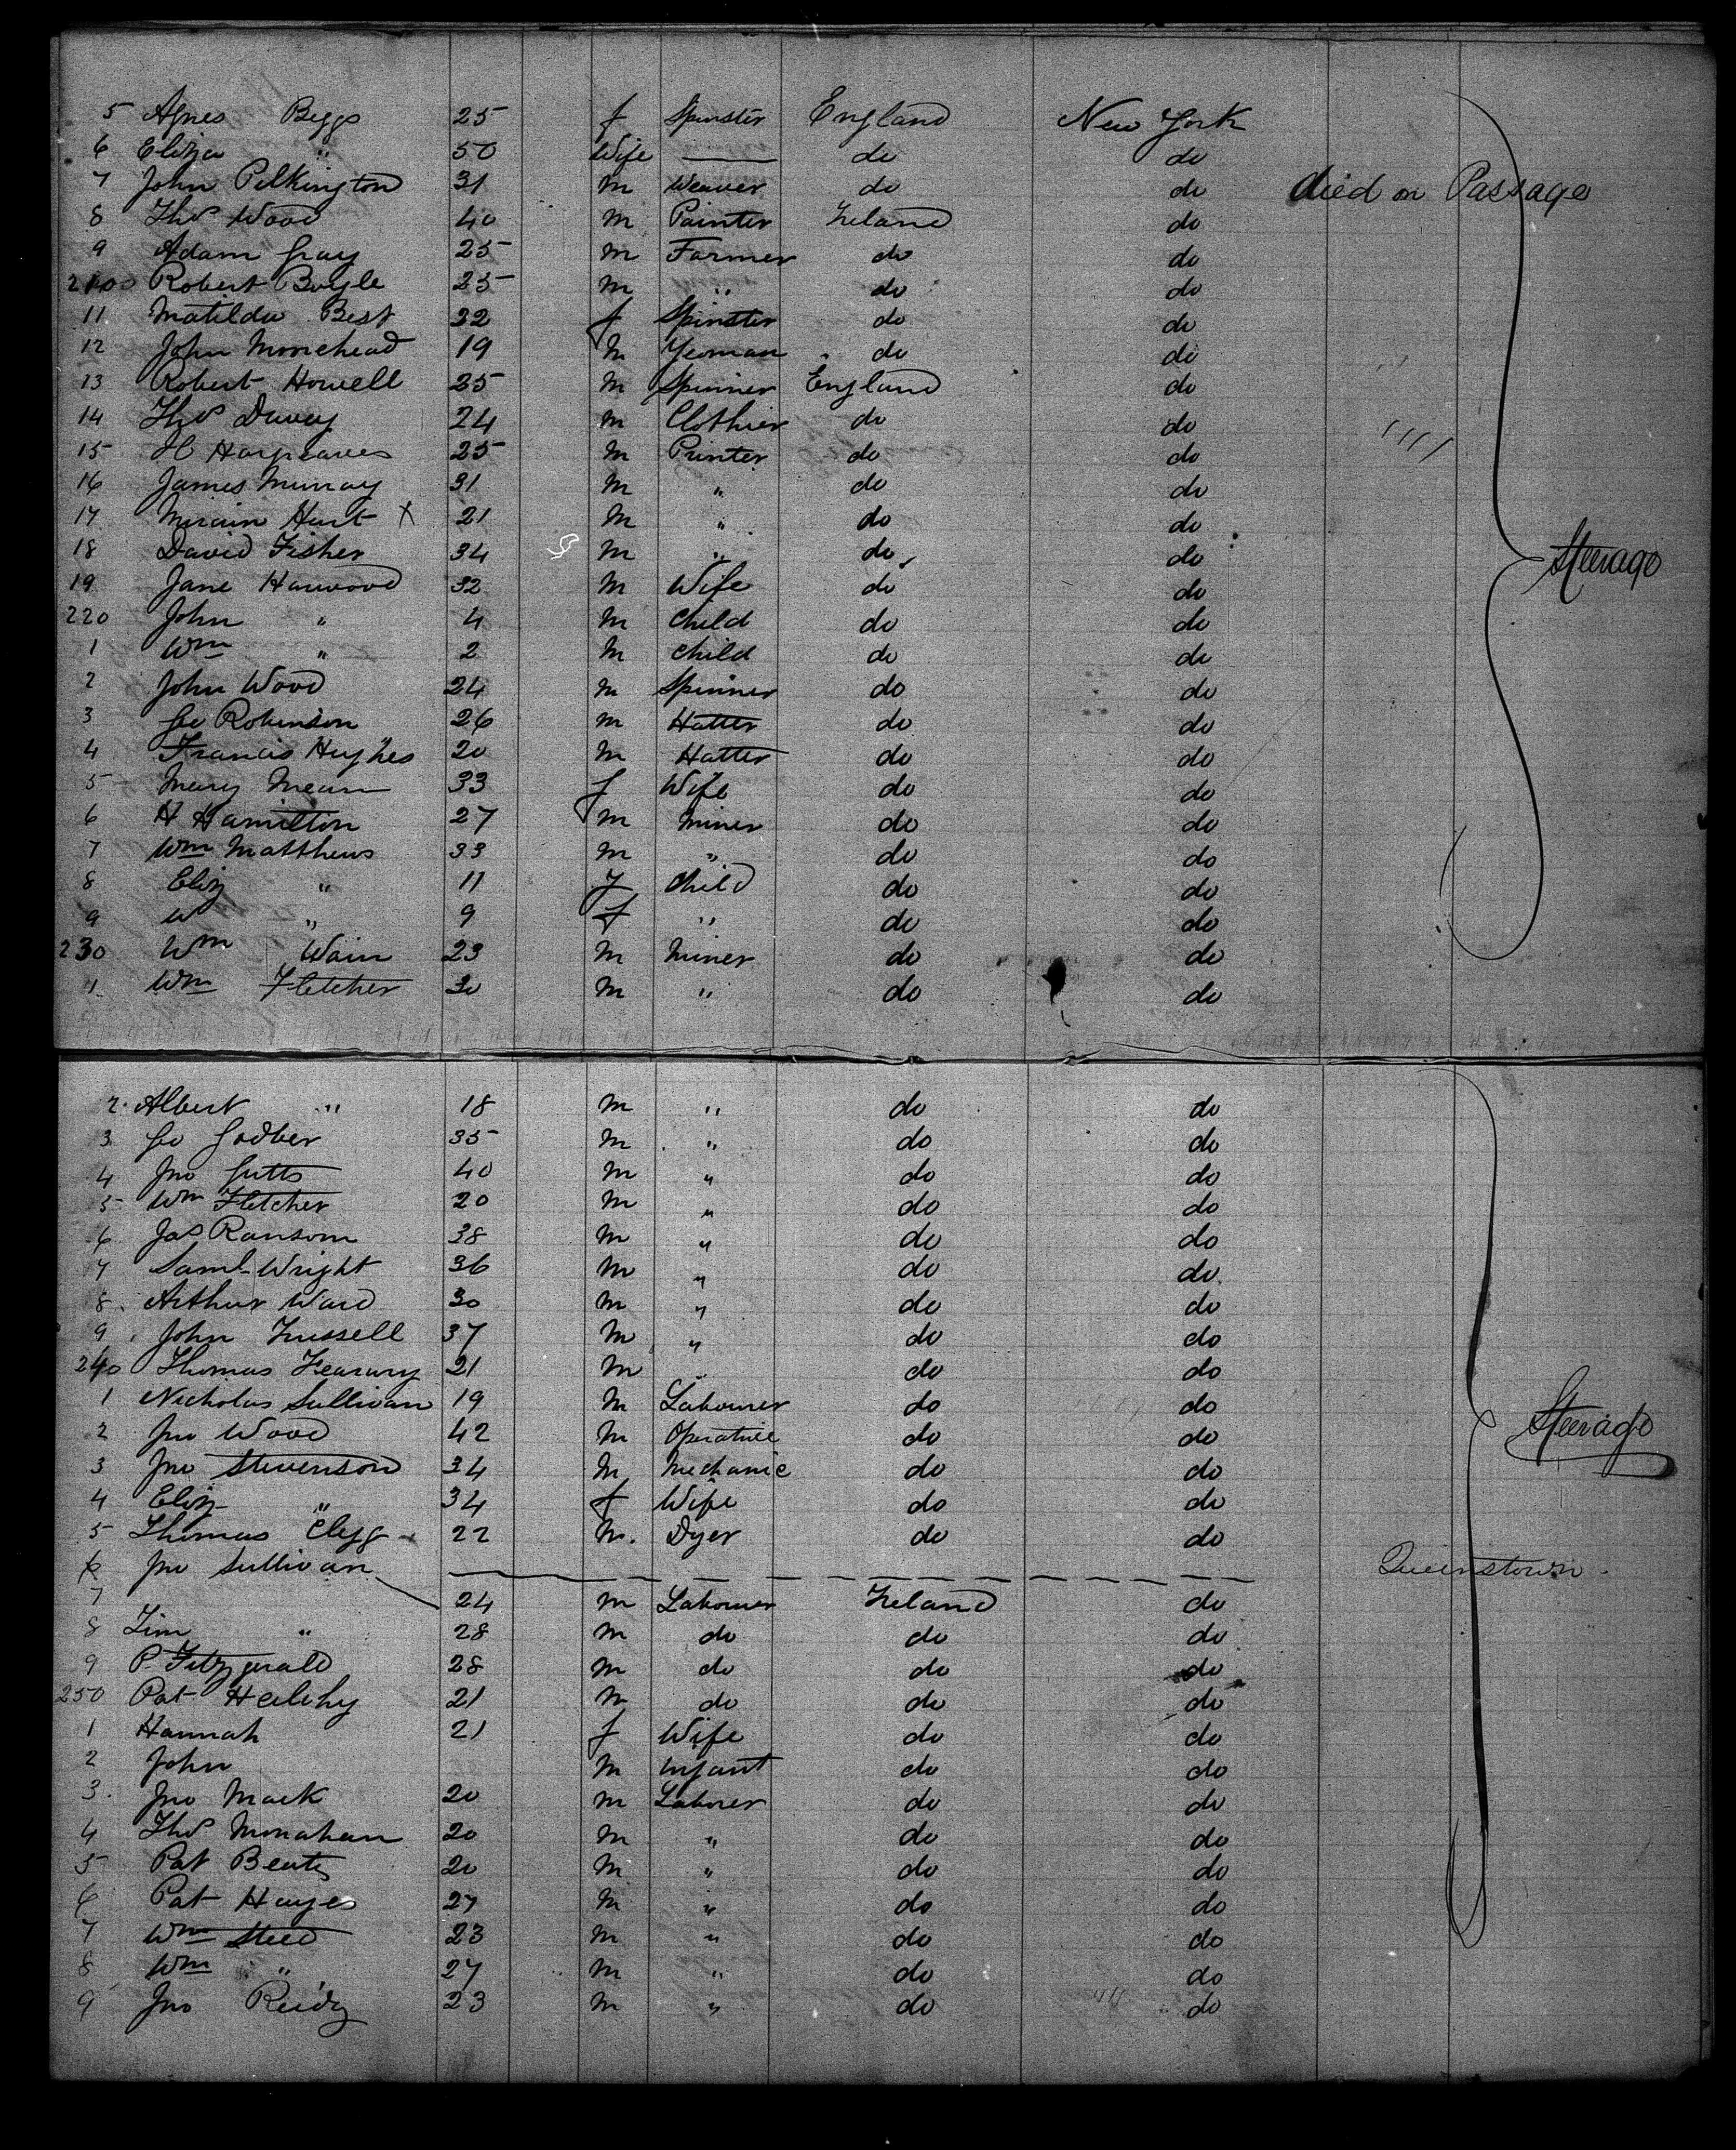 5 Agnes Beggs 25 f Spinster England New York
6 Eliza " 50 Wife — do do
7 John Pilkington 31 m Weaver do do died on Passage
8 Thos Wood 40 m Painter Ireland do
9 Adam Gray 25 m Farmer do do
210 Robert Boyle 25 m " do do
11 Matilda Best 32 f Spinster do do
12 John Moorehead 19 m Yeoman do do
13 Robert Howell 25 m Spinner England do
14 Thos Davey 24 m Clothier do do
15 H Hargreaves 25 m Printer do do
16 James Murray 31 m " do do
17 Hart X 21 m " do do
18 David Fisher 34 m " do do Steerage
19 Jane Harwood 32 m Wife do do
220 John " 4 m Child do do
1 Wm " 2 m child do do
2 John Wood 24 m Spinner do do
3 Geo Robinson 26 m Hatter do do
4 Francis Hughes 20 m Hatter do do
5 Mary Mean 33 f Wife do do
6 H Hamilton 27 m Miner do do
7 Wm Matthews 33 m " do do
8 Eliz " 11 f child do do
9 W " 9 f " do do
230 Wm Wain 23 m Miner do do
11 Wm Fletcher 30 m " do do
2 Albert " 18 m " do do
3 Geo Godber 35 m " do do
4 Jno Gutts 40 m " do do
5 Wm Fletcher 20 m " do do
6 Jas Ransom 38 m " do do
7 Saml Wright 36 m " do do
8 Arthur Ward 30 m " do do
9 John Trussell 37 m " do do
240 Thomas 21 m " do do
1 Nicholas Sullivan 19 m Labourer do do
2 Jno Wood 42 m Operative do do Steerage
3 Jno Stevenson 34 m Mechanic do do
4 Eliz " 34 f Wife do do
5 Thomas Clegg 22 m. Dyer do do
6 Jno Sullivan Queenstown
7 24 m Labourer Ireland do
8 Tim " 28 m do do do
9 P. Fitzgerald 28 m do do do
250 Pat Healehy 21 m do do do
1 Hannah 21 f Wife do do
2 John m Infant do do
3 Jno Mack 20 m Laborer do do
4 Thos Monahan 20 m " do do
5 Pat Beaty 20 m " do do
6 Pat Hayes 27 m " do do
7 Wm Steed 23 m " do do
8 Wm " 27 m " do do
9 Jno Reidy 23 m " do do